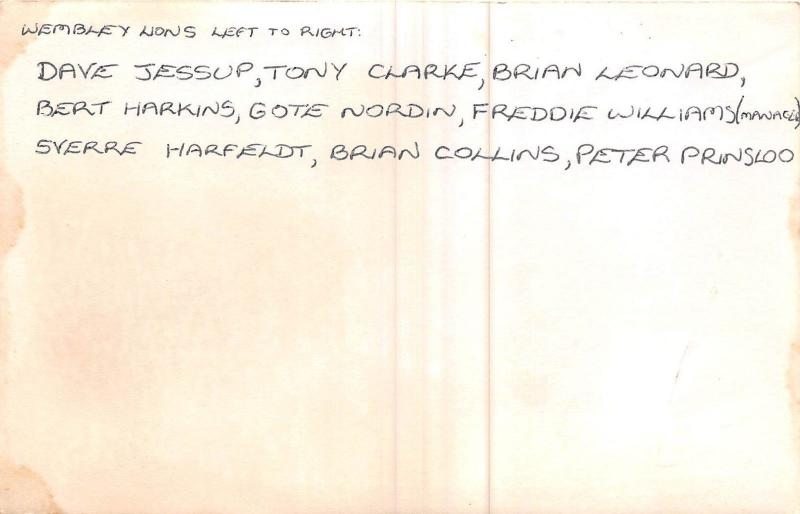 WEMBLEY LIONS LEFT TO RIGHT:
DAVE JESSUP, TONY CLARKE, BRIAN LEONARD,
BERT HARKINS, GOTE NORDIN, FREDDIE WILLIAMS (MANAGER)
SVERRE HARFELDT, BRIAN COLLINS, PETER PRINSLOO